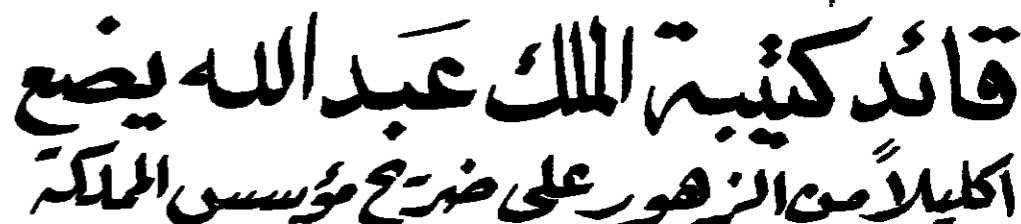 قائد كتيبة الملك عَبد الله يضع
اكليلاً من الزهور على ضريح مؤسس المملكة